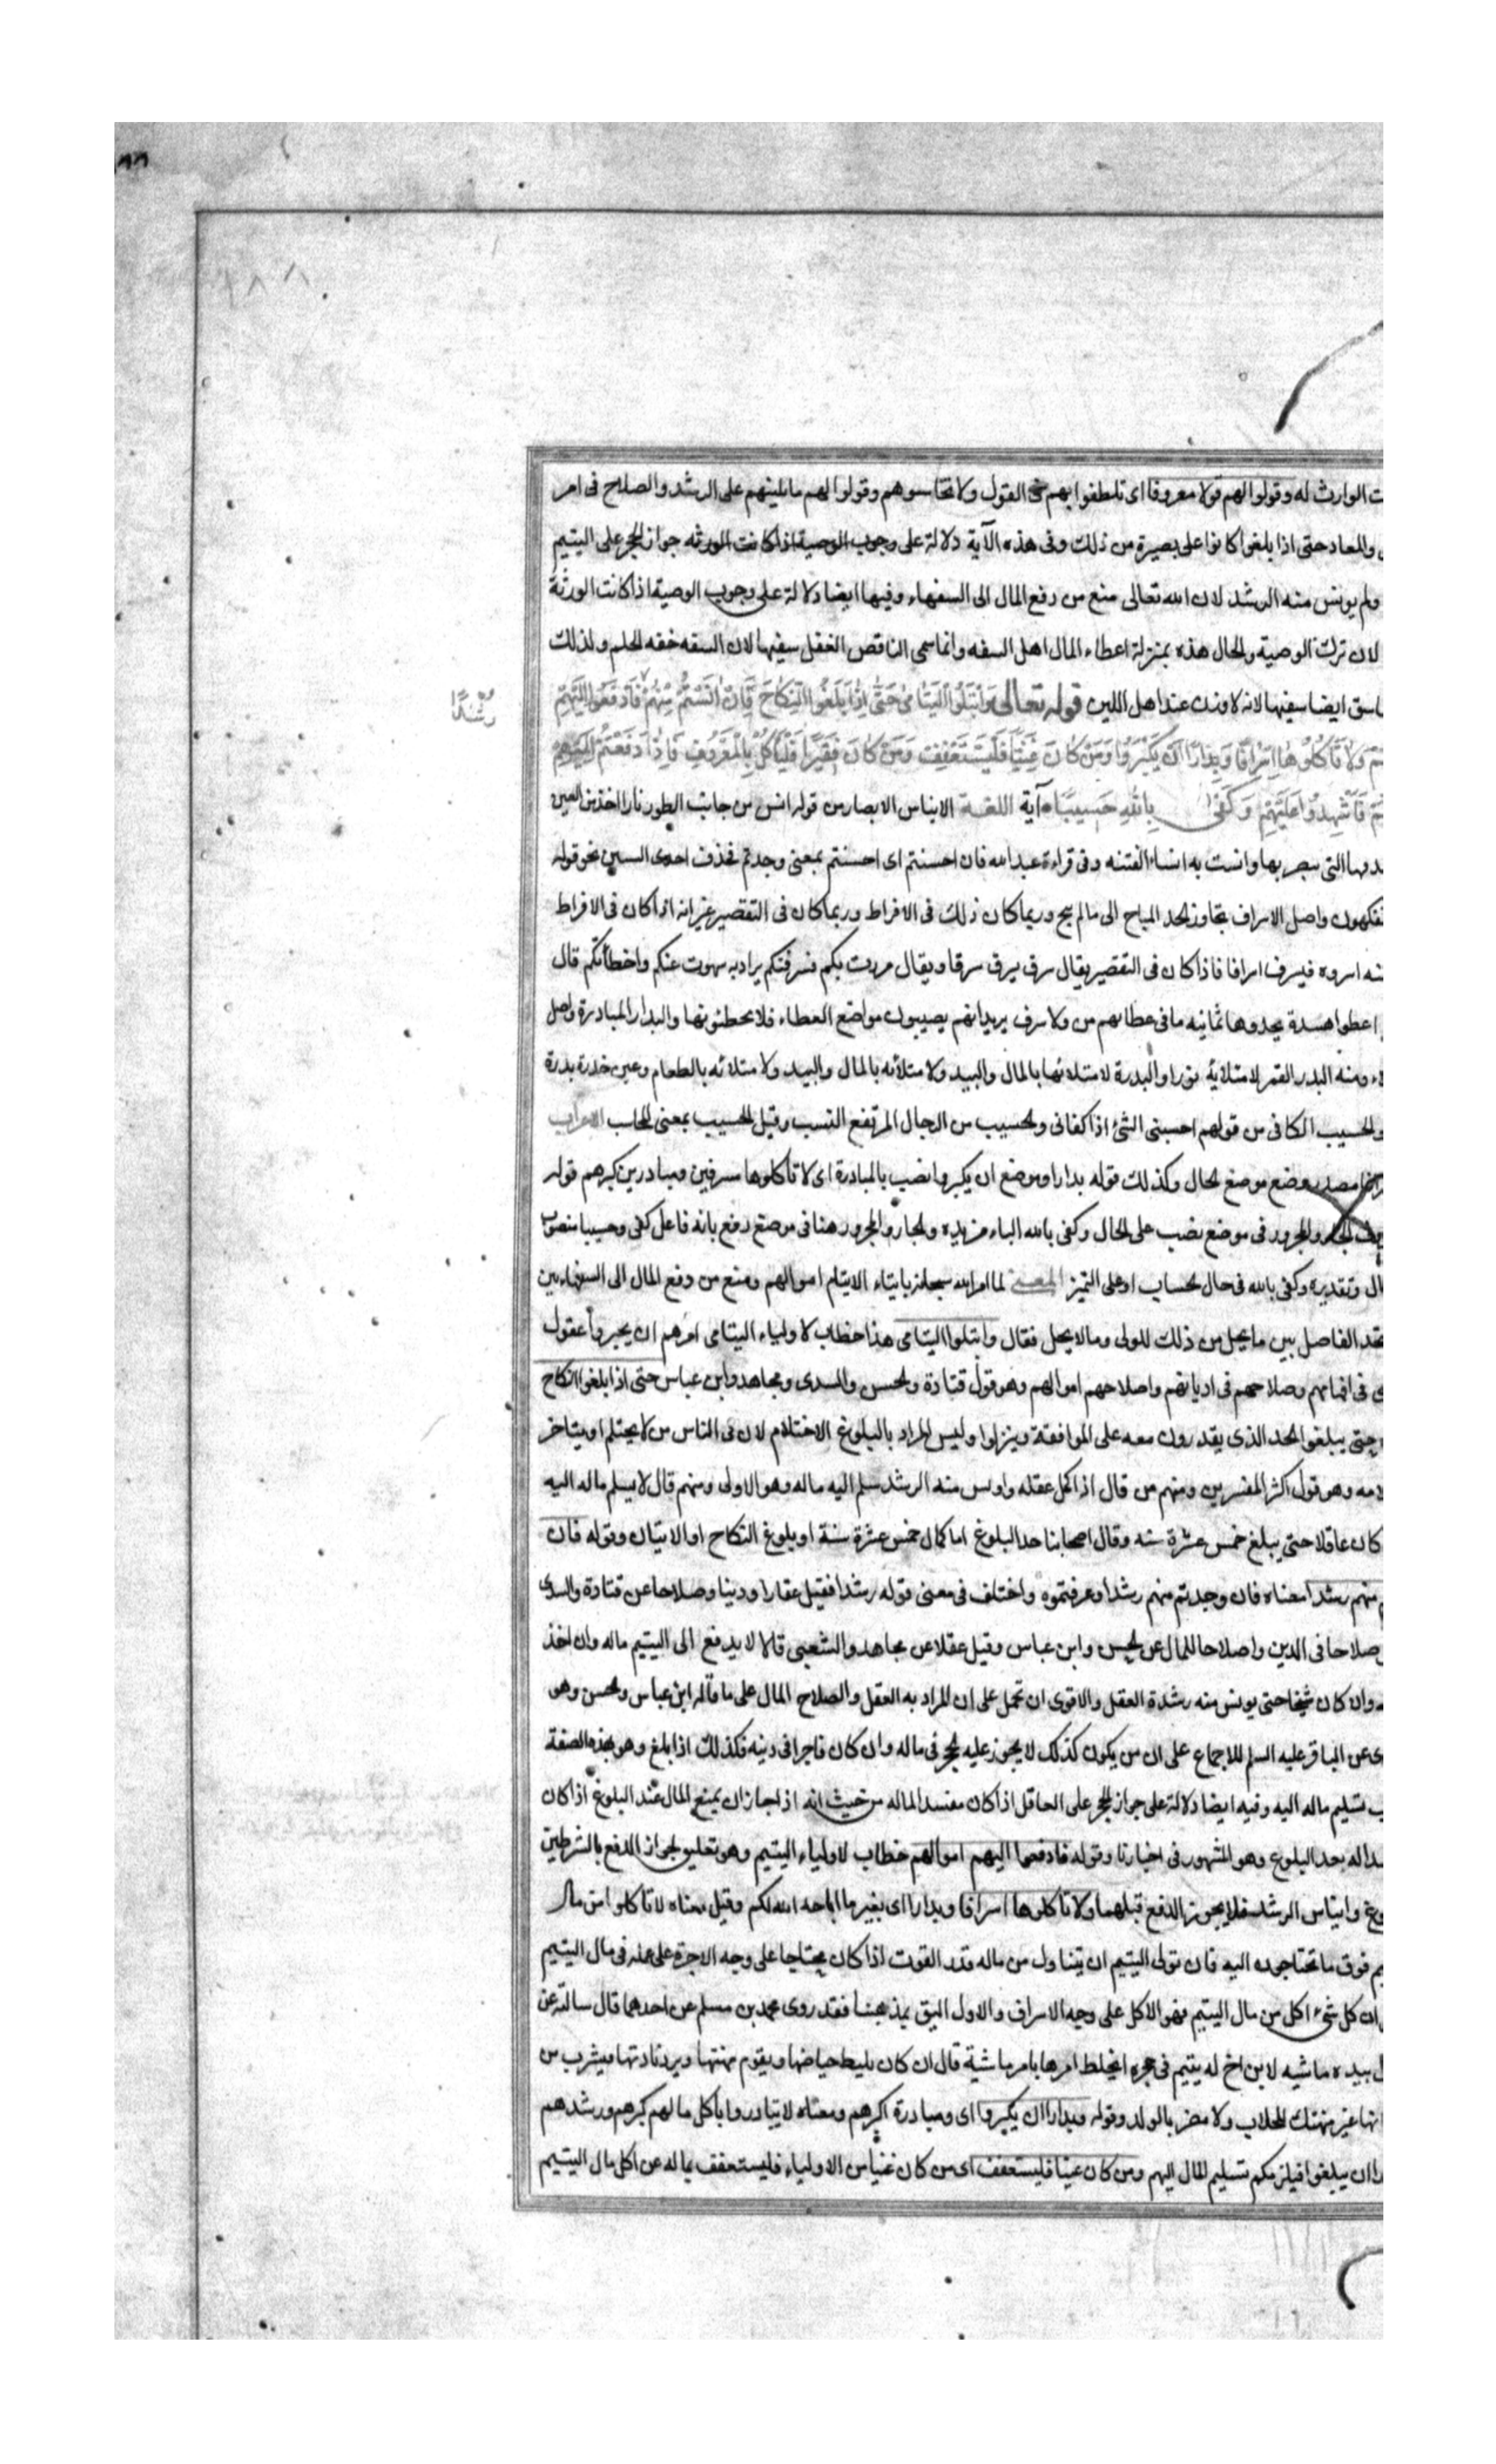 ت الوارث له وقولوا لهم قولا معروفا اى تلطفوا بهم فى القول ولا تخاسنوهم وقولوا لهم ما يلينهم على الرشد والصلاح فى امر
والمعاد حتى اذا بلغوا كانوا على بصيرة من ذلك وفى هذه الآية دلالة على وجوب الوصية اذا كانت الورثه جواز الحجر على اليتيم
ولم يونس منه الرشد لان الله تعالى منع من دفع المال الى السفهاء وفيها ايضا دلالة على وجوب الوصية اذا كانت الورثة
لان ترك الوصية والحال هذه بمنزلة اعطاء المال اهل السفه وانما سمى الناقص العقل سفيها لان السفه خفه الحلم ولذلك
اسق ايضا سفيها لانه لا وزن عند اهل الدين قوله تعالى وَابْتَلُوا الْيَتَامىٰ حَتّىٰ اِذَا بَلَغُوا النِّكَاحَ فَاِنْ اٰنَسْتُمْ مِنْهُمْ فَادْفَعُوا اِلَيْهِمْ
رُشْدًا
وَلَا تَأْكُلُوهَا اِسْرَافًا وَبِدَارًا اَنْ يَكْبَرُوا وَمَنْ كَانَ غَنِيًّا فَلْيَسْتَعْفِفْ وَمَنْ كَانَ فَقِيرًا فَلْيَأْكُلْ بِالْمَعْرُوفِ فَاِذَا دَفَعْتُمْ اِلَيْهِمْ
فَاَشْهِدُوا عَلَيْهِمْ وَكَفىٰ بِاللهِ حَسِيبًا آية اللغة الايناس الابصار من قوله انس من جانب الطور نارا اخذ من العين
التى يبصر بها وانست به انسا الفتنه وفى قراءة عبد الله فان احسنتم اى احسنتم بمعنى وجدتم فحذف احدى السين نحو قوله
تفكهون واصل الاسراف تجاوز الحد المباح الى ما لم يبح وربما كان ذلك فى الافراط وربما كان فى التقصير غير انه اذا كان فى الافراط
منه اسرف فيسرف اسرافا فاذا كان فى التقصير يقال سرف يسرف سرفا ويقال مررت بكم فسرفتكم يراد به سهوت عنكم واخطأتكم قال
اعطوا هنيدة يحدوها ثمانيه ما فى عطائهم من ولا سرف يريد انهم يصيبون مواضع العطاء فلا يخطئونها والبدار المبادرة واصل
ومنه البدر القمر لامتلائه نورا والبدرة لامتلائها بالمال والبيد ولامتلائه بالمال والبيد ولامتلائه بالطعام وعين حدرة بدرة
والحسيب الكافى من قولهم احسبنى الشئ اذا كفانى والحسيب من الرجال المرتفع النسب وقيل الحسيب بمعنى المحاسب الاعراب
مصدر وضع موضع الحال وكذلك قوله بدارا وموضع ان يكبروا نصب بالمبادرة اى لا تأكلوها مسرفين ومبادرين كبرهم قوله
الجار والمجرور فى موضع نصب على الحال وكفى بالله الباء مزيده والجار والمجرور هنا فى موضع رفع بانه فاعل كفى وحسيبا منصوب
وتقديره وكفى بالله فى حال الحساب او على التميز المعنى لما امر الله سبحانه بايتاء الايتام اموالهم ومنع من دفع المال الى السفهاء بين
الحد الفاصل بين ما يحل من ذلك للولى وما لا يحل فقال وابتلوا اليتامى هذا خطاب لاولياء اليتامى امرهم ان يختبروا عقول
فى افهامهم وصلاحهم فى اديانهم واصلاحهم اموالهم وهو قول قتادة والحسن والسدى ومجاهد وابن عباس حتى اذا بلغوا النكاح
حتى يبلغوا الحد الذى يقدرون معه على المواقعة وينزلوا وليس المراد بالبلوغ الاحتلام لان فى الناس من لا يحتلم او يتاخر
وهو قول اكثر المفسرين ومنهم من قال اذا كمل عقله واونس منه الرشد سلم اليه ماله وهو الاولى ومنهم قال لا يسلم ماله اليه
كان عاقلا حتى يبلغ خمس عشرة سنه وقال اصحابنا حد البلوغ اما كمال خمس عشرة سنة او بلوغ النكاح او الانبات وقوله فان
منهم رشدا معناه فان وجدتم منهم رشدا وعرفتموه واختلف فى معنى قوله رشدا فقيل عقلا ودينا وصلاحا عن قتادة والسدى
صلاحا فى الدين واصلاحا للمال عن الحسن وابن عباس وقيل عقلا عن مجاهد والشعبى قالا لا يدفع الى اليتيم ماله وان اخذ
وان كان شيخا حتى يونس منه رشدة العقل والاقوى ان تحمل على ان المراد به العقل والصلاح المال على ما قاله ابن عباس والحسن وهو
عن الباقر عليه السلم للاجماع على ان من يكون كذلك لا يجوز عليه الحجر فى ماله وان كان فاجرا فى دينه فكذلك اذا بلغ وهو بهذه الصفة
تسليم ماله اليه وفيه ايضا دلالة على جواز الحجر على العاقل اذا كان مفسدا لماله من حيث انه اذا جاز ان يمنع المال عند البلوغ اذا كان
بعد البلوغ وهو المشهور فى اخبارنا وقوله فادفعوا اليهم اموالهم خطاب لاولياء اليتيم وهو تعليق لجواز الدفع بالشرطين
وايناس الرشد فلا يجوز الدفع قبلهما ولا تأكلوها اسرافا وبدارا اى بغير ما اباحه الله لكم وقيل معناه لا تأكلوا من مال
فوق ما تحتاجون اليه فان تولى اليتيم ان يتناول من ماله قدر القوت اذا كان محتاجا على وجه الاجرة على عمله فى مال اليتيم
ان كل شئ اكل من مال اليتيم فهو الاكل على وجه الاسراف والاول اليق بمذهبنا فقد روى محمد بن مسلم عن احدهما قال سالته عن
بيده ماشيه لابن اخ له يتيم فى حجره ايخلط امرها بامر ماشية قال ان كان يليط حياضها ويقوم مهنتها ويرد نادتها فيشرب من
غير منهتك للحلاب ولا مضر بالولد وقوله وبدارا ان يكبروا اى ومبادرة كبرهم ومعناه لا يتبادروا باكل ما لهم كبرهم ورشدهم
ان يبلغوا فيلزمكم تسليم المال اليهم ومن كان غنيا فليستعفف اى من كان غنيا من الاولياء فليستعفف بماله عن اكل مال اليتيم